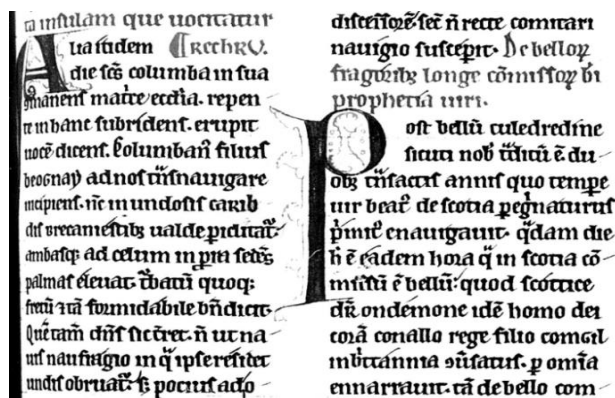 ta insulam que uocitatur
Alia itidem ¶ RECHRV.
die scs columba in sua
manens matre ecclia. repen
te in hanc subridens. erupit
uocē dicens. Colūbanꝰ filius
beognay ad nos tn̄snauigare
incipiens. nc̄ in undosis carib
dis brecamestibꝫ ualde piditat᷑
ambasqꝫ ad celum in prin sedēs
palmas eleuat. quoqꝫ
fretū tā formidabile bn̄dicit.
Quē tam dn̄s sic n̄ ut na
uis naufragio in q̄ ipse residet
undis obruat᷑. sꝫ pocius ad po
discensorē. set n̄ recte comitari
nauigio suscepit. De belloꝝ
fragoribꝫ longe cōmissoꝝ bi
prophetia uiri.
Post bellū culedredine
sicuti nob̄ ē du
obꝫ tn̄sactis annis quo tempe
uir beatꝰ de scotia pegͥnaturus
pͥmitꝰ enauigauit. q̄dam die
h̄ ē eadem hora q̄ in scotia cō
missū ē bellū: quod scottice
dr̄ ondemone idē homo dei
corā conallo rege filio comgil
in britannia ꝯuͥsatus. ꝑ omīa
enarrauit. tā de bello com